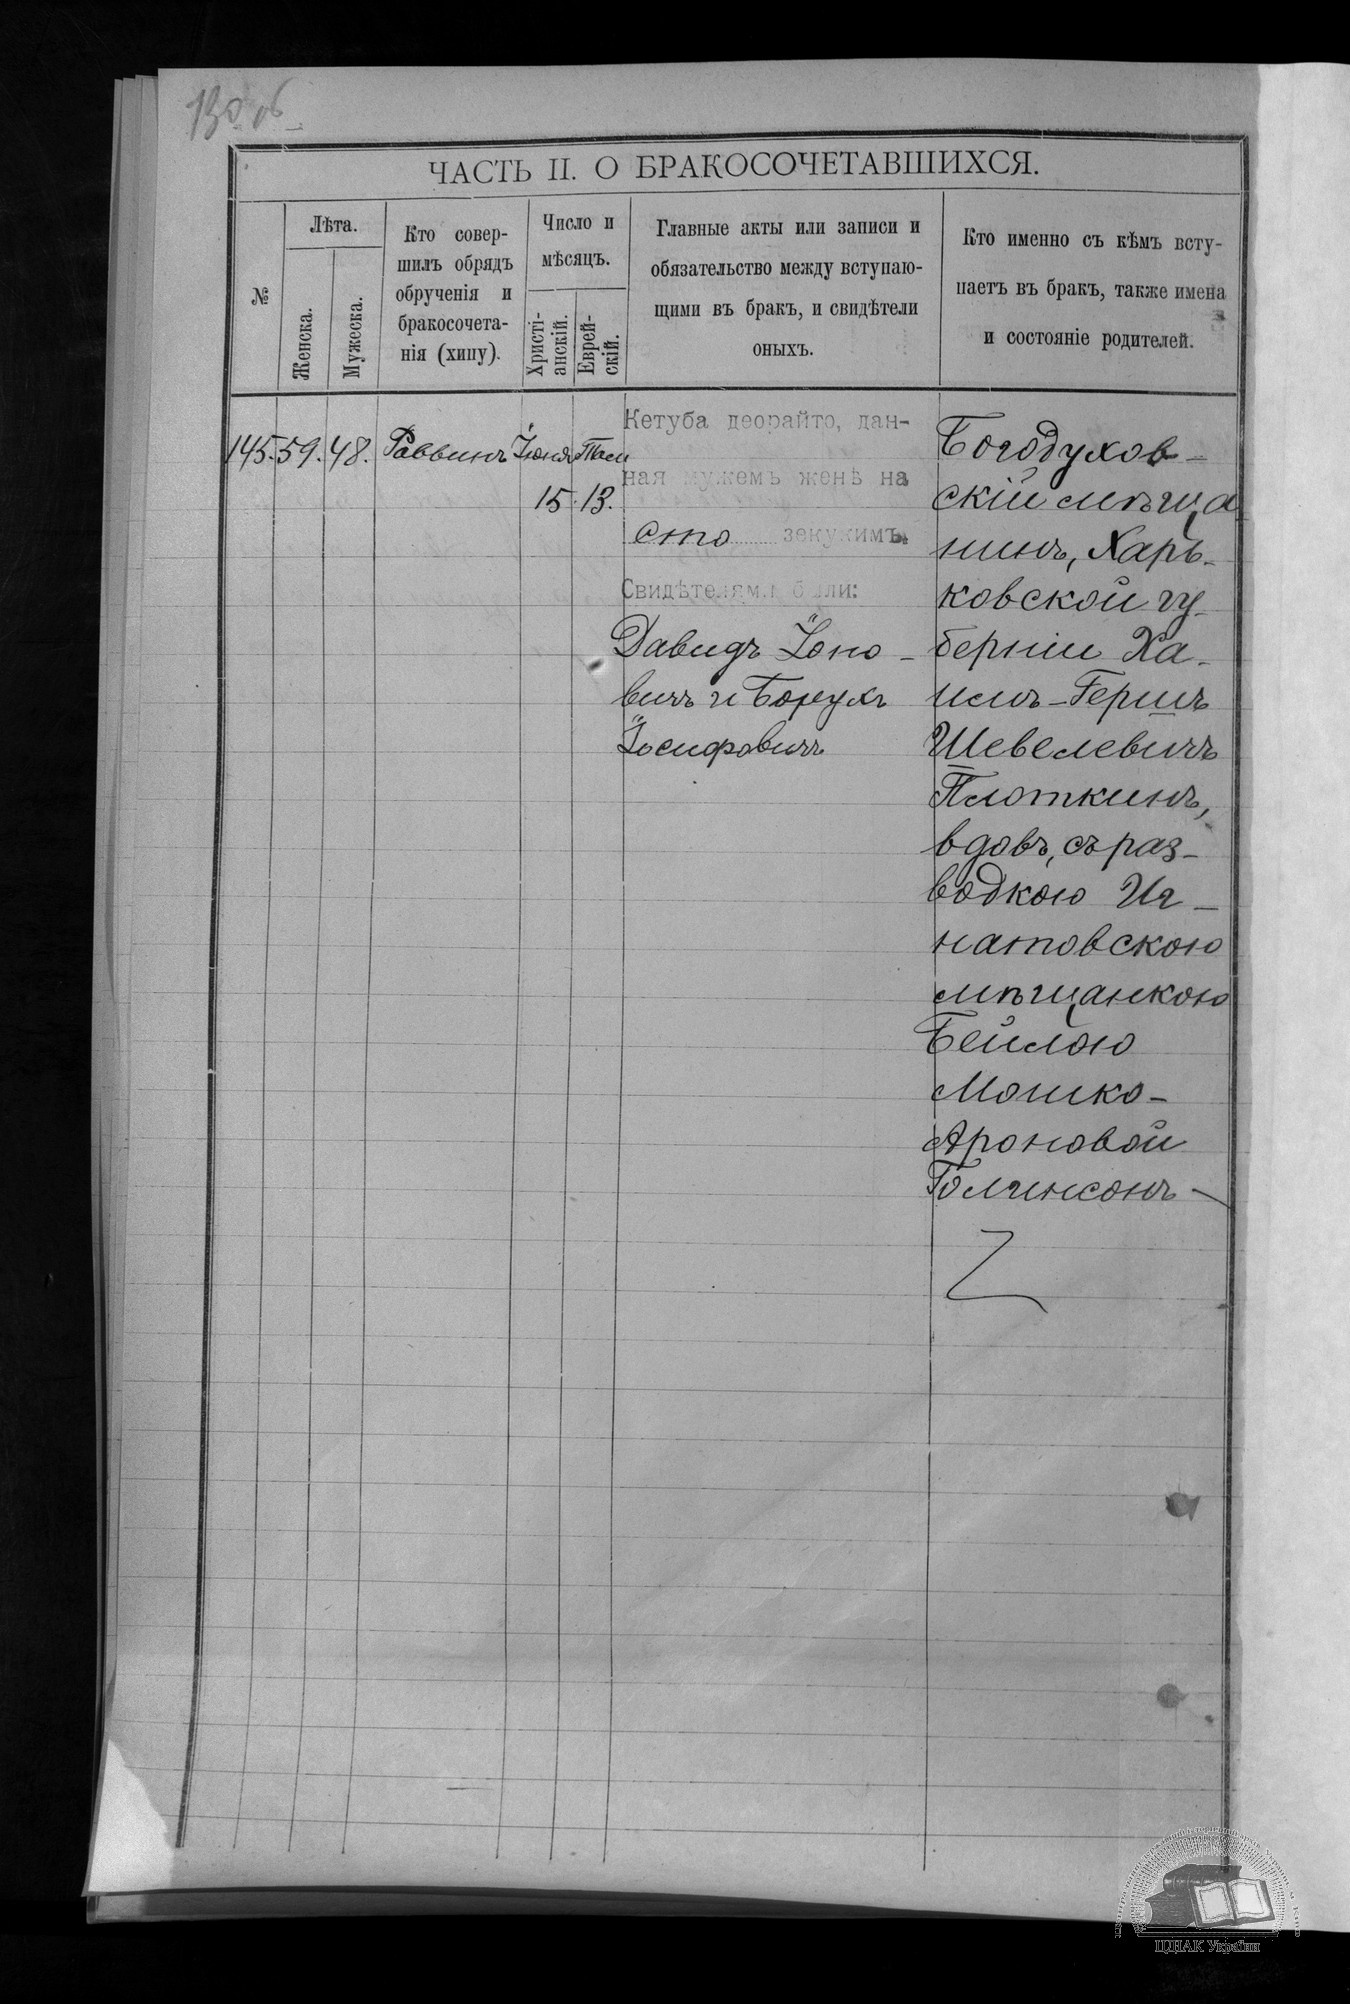 130 об
ЧАСТЬ II. О БРАКОСОЧЕТАВШИХСЯ.
№
Лѣта.
Женска.
Мужеска.
Кто совер-
шилъ обрядъ
обрученія и
бракосочета-
нія (хипу).
Число и
мѣсяцъ.
Христі-
анскій.
Еврей-
скій.
Главные акты или записи и
обязательство между вступаю-
щими въ бракъ, и свидѣтели
оныхъ.
Кто именно съ кѣмъ всту-
паетъ въ бракъ, также имена
и состояніе родителей.
145. 59. 48. Раввинъ Іюня Там
15. 13.
Кетуба деорайто, дан-
ная мужемъ женѣ на
сто зекукимъ.
Свидѣтелями были:
Давидъ Іоно-
вичъ и Борухъ
Іосифовичъ
Богодухов-
скій мѣща
нинъ, Харь-
ковской гу-
берніи Ха-
имъ-Гершъ
Шевелевичъ
Плоткинъ,
вдовъ, съ раз-
водкою Иг-
натовскою
мѣщанкою
Бейлою
Мошко-
Ароновой
ЦДІАК України